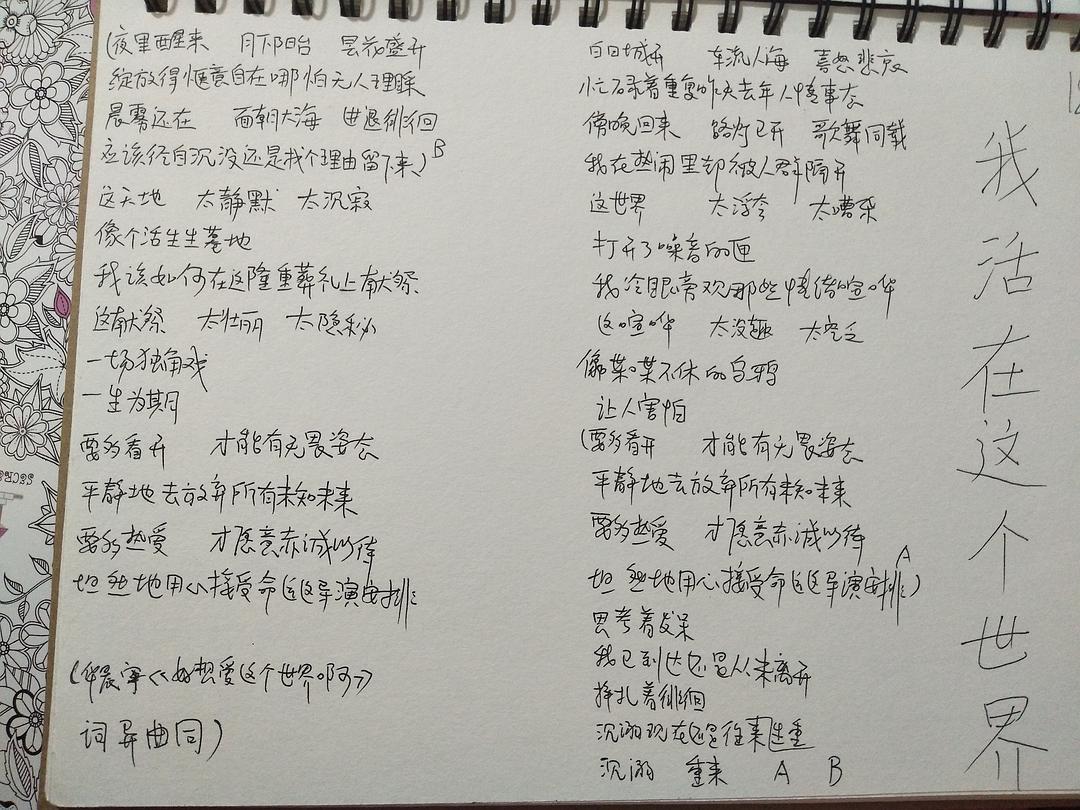 (夜里醒来 月下阳台 昙花盛开
绽放得惬意自在哪怕无人理睬
晨雾还在 面朝大海 进退徘徊
应该径自沉没还是找个理由留下来) B
这天地 太静默 太沉寂
像个活生生墓地
我该如何在这隆重葬礼上献祭
这献祭 太壮丽 太隐秘
一场独角戏
一生为期
要多看开 才能有无畏姿态
平静地去放弃所有未知未来
要多热爱 才愿意赤诚以待
坦然地用心接受命运这导演安排
(华晨宇《好想爱这个世界啊》
词异曲同)
白日城开 车流人海 喜怒悲哀
忙碌着重复昨天去年人情事态
傍晚回来 路灯已开 歌舞同载
我在热闹里却被人群隔开
这世界 太浮夸 太嘈杂
打开了噪音的匣
我冷眼旁观那些情绪喧哗
这喧哗 太没趣 太空乏
像喋喋不休的乌鸦
让人害怕
(要多看开 才能有无畏姿态
平静地去放弃所有未知未来
要多热爱 才愿意赤诚以待
坦然地用心接受命运这导演安排) A
思考着发呆
我已到达还是从未离开
挣扎着徘徊
沉溺现在还是往来生重
沉溺 重来 A B
我活在这个世界